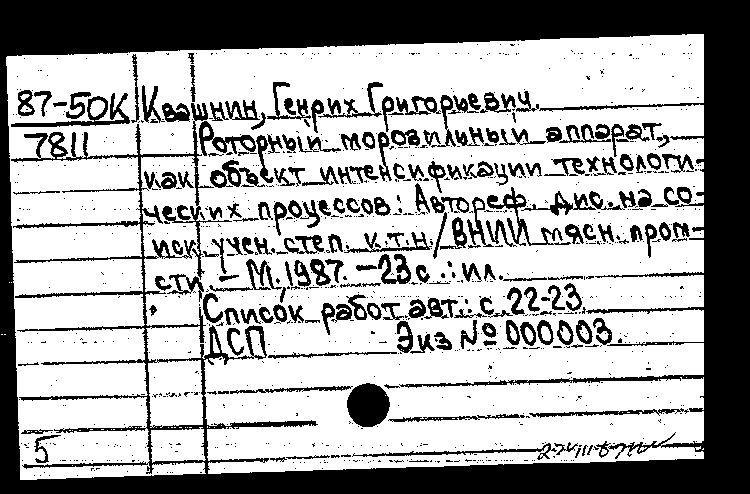 87-50К Квашнин, Генрих Григорьевич.
7811 Роторный морозильный аппарат,
как объект интенсификации технологи-
ческих процессов: Автореф. дис. на со-
иск. учен. степ. к.т.н. / ВНИИ мясн. пром-
сти. – М. 1987. – 23 с.: ил.
Список работ авт.: с. 22-23
ДСП Экз № 000003.
5